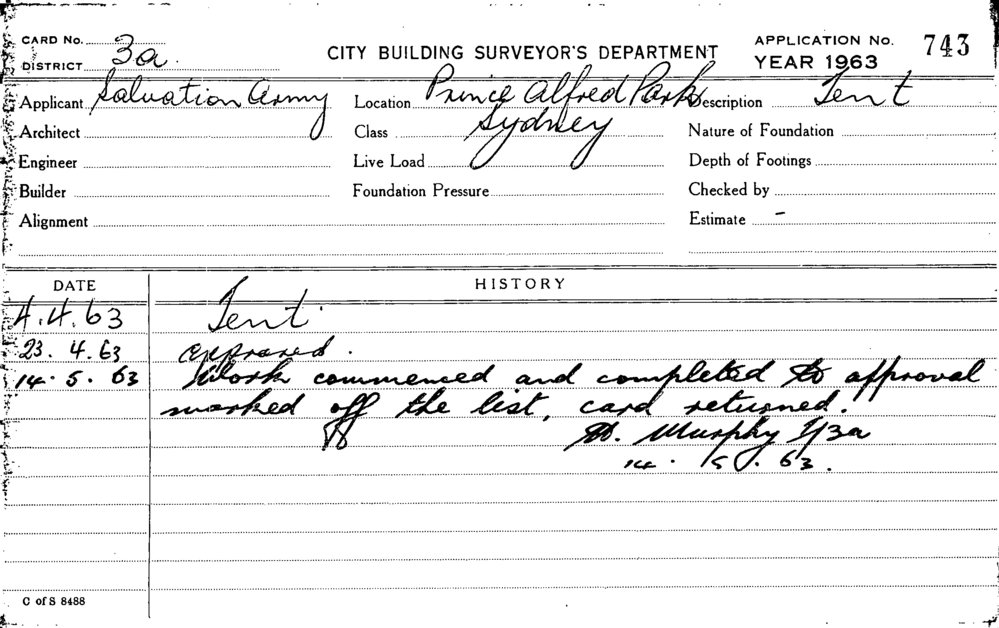 CARD No.
DISTRICT 3a
CITY BUILDING SURVEYOR'S DEPARTMENT
APPLICATION No. 743
YEAR 1963
Applicant Salvation Army
Location Prince Alfred Park
Description Tent
Architect
Class Sydney
Nature of Foundation
Engineer
Live Load
Depth of Footings
Builder
Foundation Pressure
Checked by
Alignment
Estimate -
DATE
HISTORY
4.4.63 Tent.
23.4.63 approved.
14.5.63 Work commenced and completed to approval
marked off the list, card returned.
Murphy 3a
14.5.63.
C of S 8488